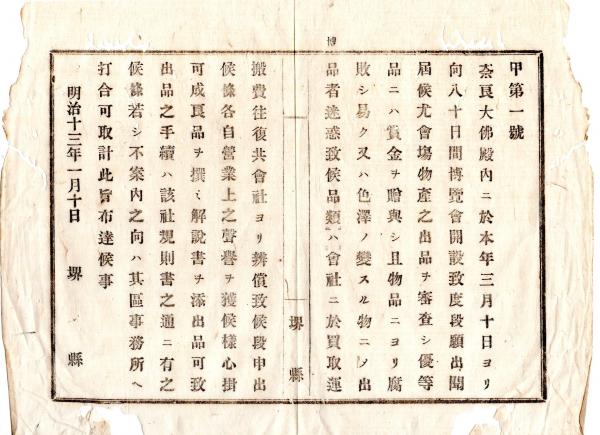 博
甲第一號
奈良大佛殿内ニ於本年三月十日ヨリ
向八十日間博覽會開設致度段願出聞
屆候尤會塲物產之出品ヲ審査シ優等
品ニハ賞金ヲ贈與シ且物品ニヨリ腐
敗シ易ク又ハ色澤ノ變スル物ニノ出
品者迷惑致候品類ハ會社ニ於買取運
堺縣
搬費往復共會社ヨリ辨償致候段申出
候條各自營業上之聲譽ヲ獲候樣心掛
可成良品ヲ撰ミ解說書ヲ添出品可致
出品之手續ハ該社規則書之通ニ有之
候條若シ不案内之向ハ其區事務所ヘ
打合可取計此旨布達候事
明治十三年一月十日 堺縣